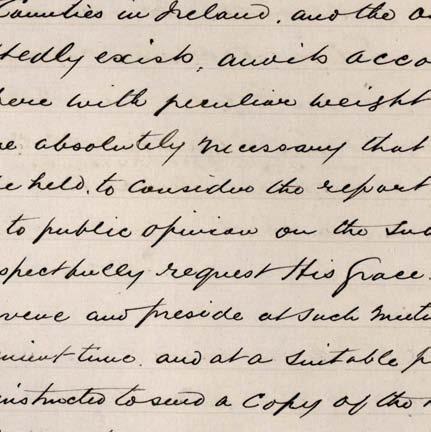 Counties in Ireland, and the
tedly exists, and its acco
here with peculiar weight
e absolutely necessary that
e held, to consider the report
to public opinion on the Su
spectfully request His Grace
vene and preside at such Meet
nient time, and at a suitable p
instructed to send a Copy of the